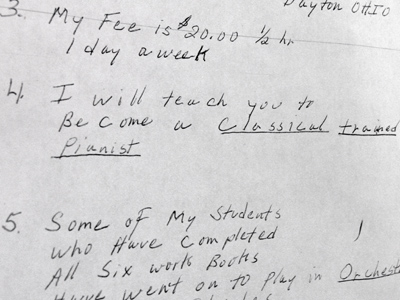 Dayton OHIO
3. My Fee is $20.00 ½ hr.
1 day a week
4. I will teach you to
Become a Classical trained
Pianist
5. Some of My Students
who Have Completed
All Six work Books
Have went on to play in